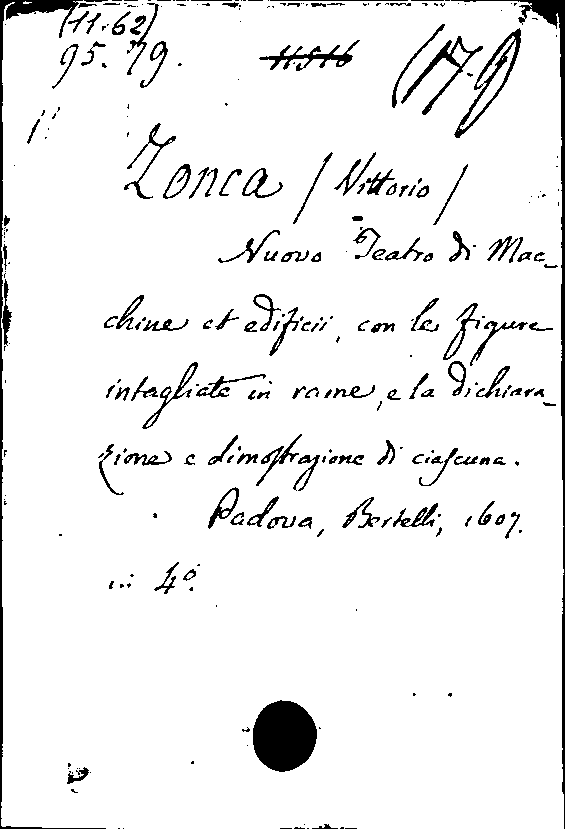 (11.62)
95. 79. 11516 (17.9)
Zonca / Vittorio /
Nuovo Teatro di Mac-
chine et edificii, con le figure
intagliate in rame, e la dichiara-
zione e dimoſtrazione di ciaſcuna.
Padova, Bertelli, 1607.
in 4º.